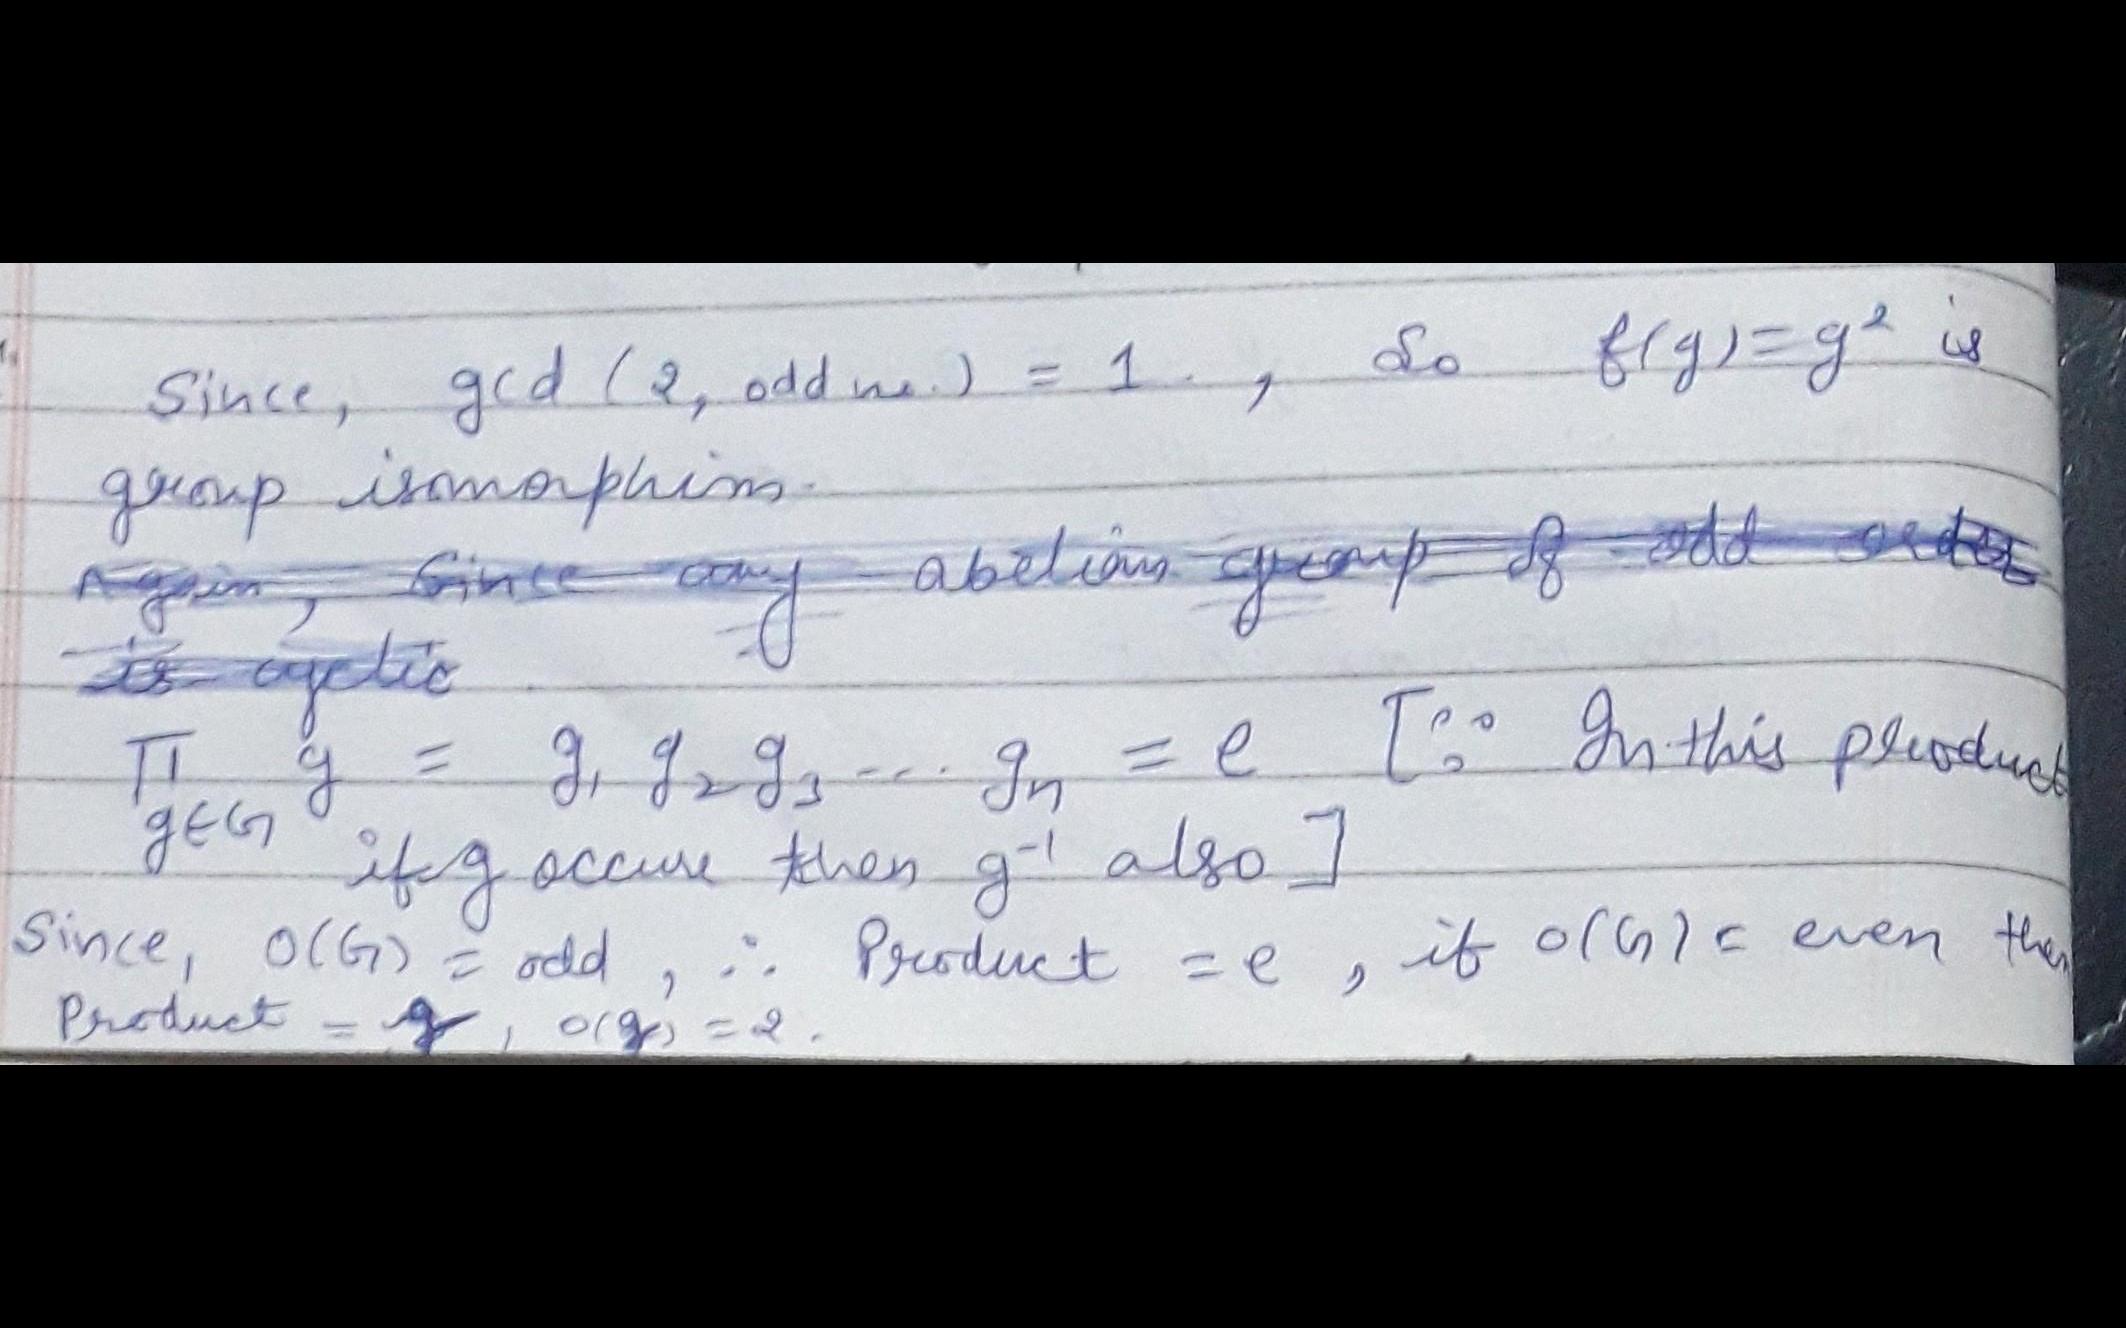 Since, gcd (2, odd no.) = 1. , So f(g)=g² is
group isomorphism.
Again, Since any abelian group of odd order
is cyclic
∏ g = g₁ g₂ g₃ .... gₙ = e [∵ In this product
g∈G if g occure then g⁻¹ also]
Since, O(G) = odd , ∴ Product = e , if O(G) = even then
Product = g , o(g) = 2.